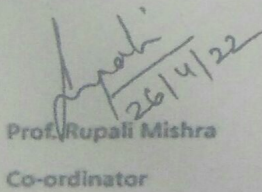 Rupali
26/4/22
Prof. Rupali Mishra
Co-ordinator